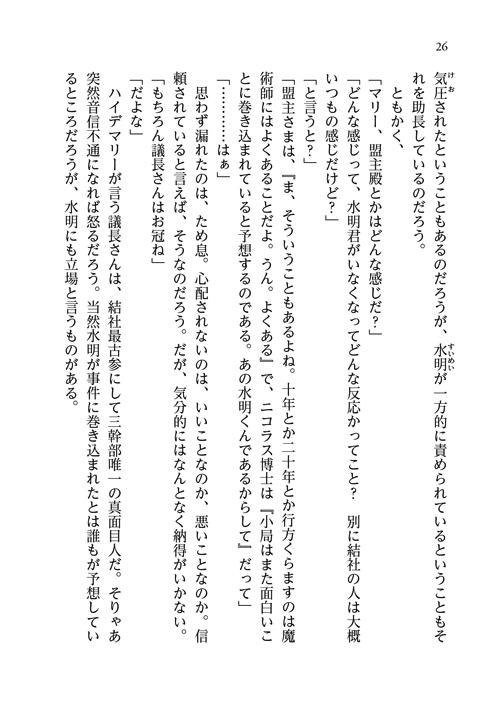 26
気圧されたということもあるのだろうが、水明が一方的に責められているということもそ
れを助長しているのだろう。
　ともかく、
「マリー、盟主殿とかはどんな感じだ？」
「どんな感じって、水明君がいなくなってどんな反応かってこと？　別に結社の人は大概
いつもの感じだけど？」
「と言うと？」
「盟主さまは、『ま、そういうこともあるよね。十年とか二十年とか行方くらますのは魔
術師にはよくあることだよ。うん。よくある』で、ニコラス博士は『小局はまた面白いこ
とに巻き込まれていると予想するのである。あの水明くんであるからして』だって」
「…………はぁ」
　思わず漏れたのは、ため息。心配されないのは、いいことなのか、悪いことなのか。信
頼されていると言えば、そうなのだろう。だが、気分的にはなんとなく納得がいかない。
「もちろん議長さんはお冠ね」
「だよな」
　ハイデマリーが言う議長さんは、結社最古参にして三幹部唯一の真面目人だ。そりゃあ
突然音信不通になれば怒るだろう。当然水明が事件に巻き込まれたとは誰もが予想してい
るところだろうが、水明にも立場と言うものがある。